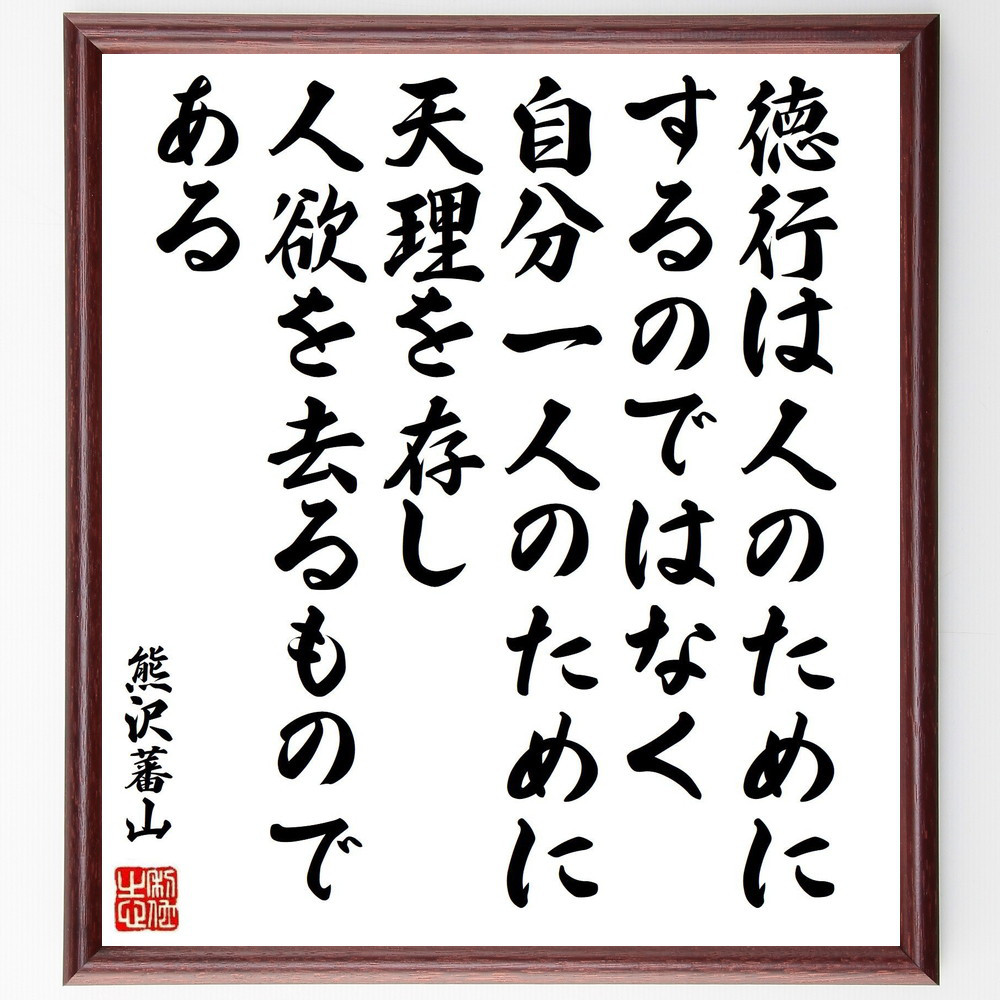 徳行は人のために
するのではなく
自分一人のために
天理を存し
人欲を去るもので
ある
熊沢蕃山